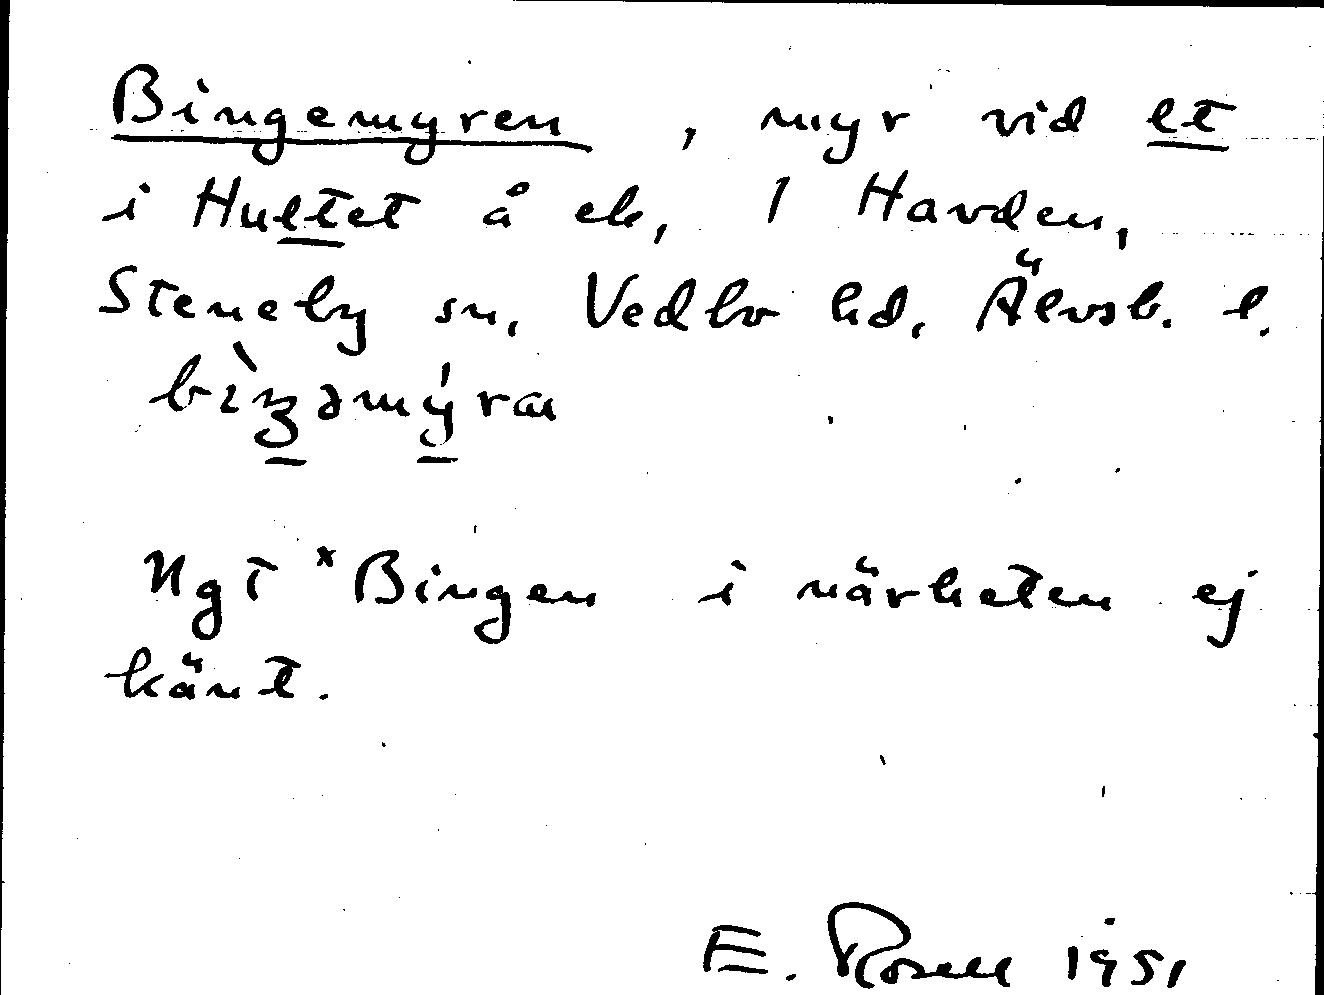 Bingemyren, myr vid et
i Hultet å ek, 1 Havden,
Steneby sn, Vedbo hd, Älvsb. l.
Ngt *Bingen i närheten ej
känt.
E. Rosell 1951